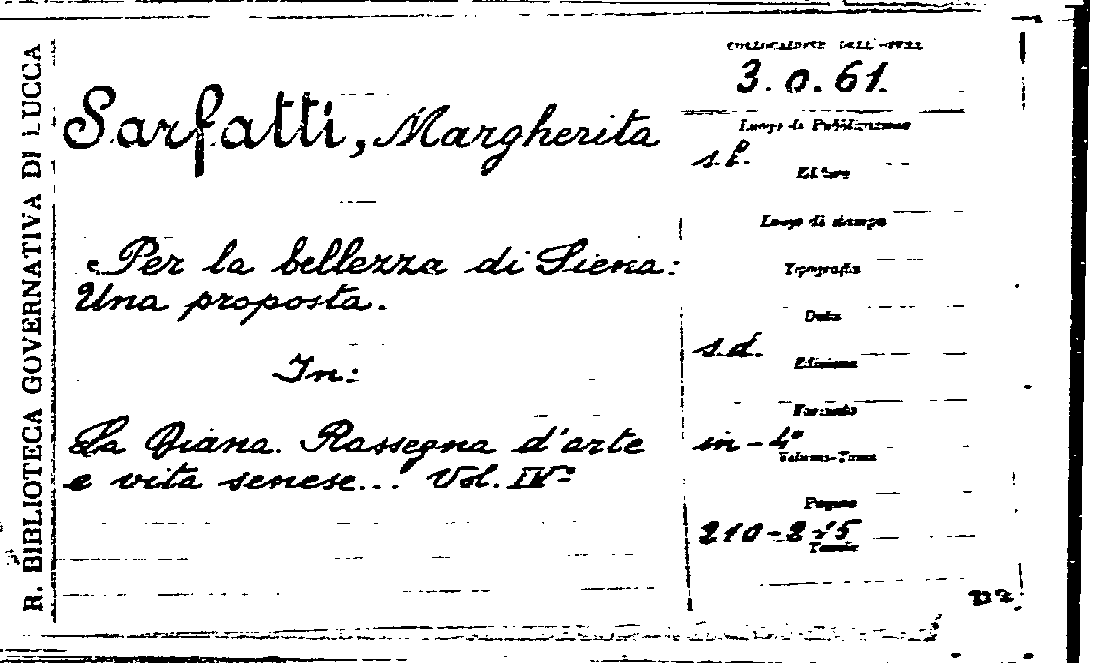 R. BIBLIOTECA GOVERNATIVA DI LUCCA
COLLOCAZIONE DELL'OPERA
3. o. 61.
Sarfatti, Margherita
Luogo di Pubblicazione
s.l.
Editore
Per la bellezza di Siena:
Una proposta.
Luogo di stampa
Tipografia
Data
s.d.
In:
Edizione
Formato
La Diana. Rassegna d'arte
e vita senese... Vol. IVº
in-4º
Volume-Tomo
Pagine
210-215
Tavole